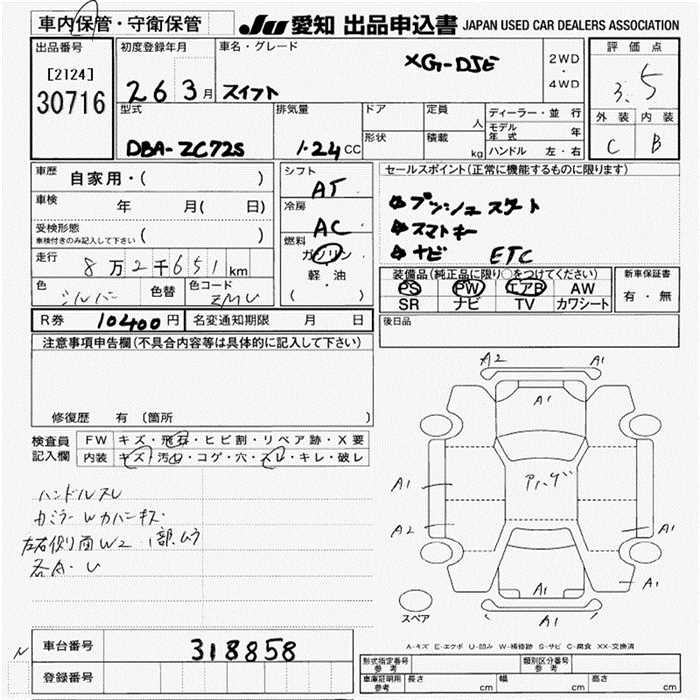 車内保管・守衛保管
JU 愛知 出品申込書 JAPAN USED CAR DEALERS ASSOCIATION
出品番号
[2124]
30716
初度登録年月
26 3月
車名・グレード
XG-DJE
スイフト
2WD
・
4WD
評価点
3.5
外装 内装
C B
型式
DBA-ZC72S
排気量
1.24cc
ドア
形状
定員
人
積載
kg
ディーラー・並行
モデル年式 年
ハンドル 左・右
車歴 自家用・( )
車検 年 月( 日)
受検形態
車検付きのみ記入して下さい ( )
走行 8万2千651km
色 シルバー 色替 色コード ZMU
シフト
AT
冷房
AC
燃料
ガソリン
軽油
( )
セールスポイント(正常に機能するものに限ります)
プッシュスタート
スマートキー
ナビ ETC
装備品(純正品に限り○をつけてください)
PS PW エアB AW
SR ナビ TV カワシート
新車保証書
有・無
R券 10400円 名変通知期限 月 日
後日品
注意事項申告欄(不具合内容等は具体的に記入して下さい)
修復歴 有 〔箇所 〕
検査員記入欄
FW キズ・飛石・ヒビ割・リペア跡・X要
内装 キズ・汚れ・コゲ・穴・スレ・キレ・破レ
ハンドルスレ
左右側面W2
各A・U
A2 A1
A1
A1
A2
A1
A1
A1
A1
スペア
A-キズ E-エクボ U-凹み W-補修跡 S-サビ C-腐食 XX-交換済
車台番号 318858
登録番号
形式指定番号 参考
類別区分番号 参考
車庫証明用 参考 長さ cm 幅 cm 高さ cm